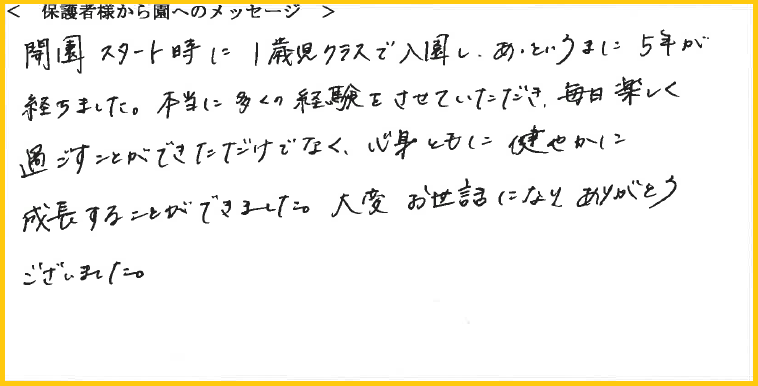 ＜　保護者様から園へのメッセージ　＞
開園スタート時に1歳児クラスで入園し、あっというまに5年が
経ちました。本当に多くの経験をさせていただき、毎日楽しく
過ごすことができただけでなく、心身ともに健やかに
成長することができました。大変お世話になりありがとう
ございました。